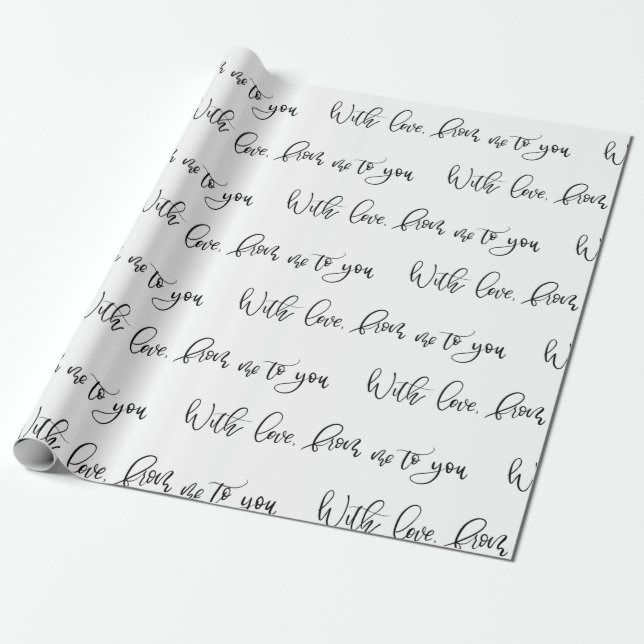 me to you With love, from me to you W
With love, from me to you With love, from
me to you With love, from me to you W
With love, from me to you With love, from
me to you With love, from me to you W
With love, from me to you With love, from
me to you With love, from me to you W
With love, from me to you With love, from